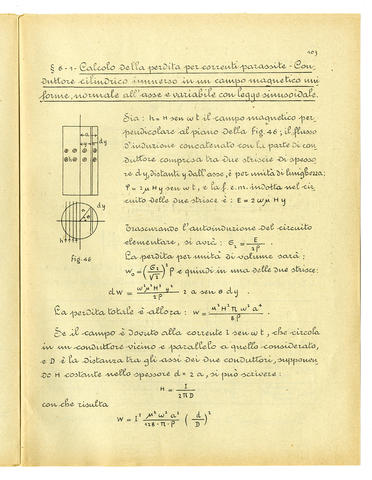 103
§ 6-1- Calcolo della perdita per correnti parassite - Con-
duttore cilindrico immerso in un campo magnetico uni
forme, normale all'asse e variabile con legge sinusoidale.
Sia: h = H sen ω t il campo magnetico per-
pendicolare al piano della Fig. 46; il flusso
d'induzione concatenato con la parte di con
duttore compresa tra due striscie di spesso
re dy, distanti y dall'asse, è per unità di lunghezza:
φ = 2 μ H y sen ω t, e la f.e.m. indotta nel cir
cuito delle due strisce è: E = 2 ω μ H y
Trascurando l'autoinduzione del circuito
elementare, si avrà: G₂ = E / 2ρ .
La perdita per unità di volume sarà:
w₀ = (G₂ / √2)² ρ e quindi in una delle due strisce:
dW = ω² μ² H² y² / 2ρ 2 a sen θ dy .
La perdita totale è allora: W = μ² H² π ω² a⁴ / 8ρ .
Se il campo è dovuto alla corrente I sen ω t, che circola
in un conduttore vicino e parallelo a quello considerato,
e D è la distanza tra gli assi dei due conduttori, supponen
do H costante nello spessore d = 2 a, si può scrivere:
H = I / 2 π D
con che risulta
W = I² μ² ω² a² / 128 · π · ρ (d / D)²
a
y
dy
h
dy
a
θ
h
Fig. 46